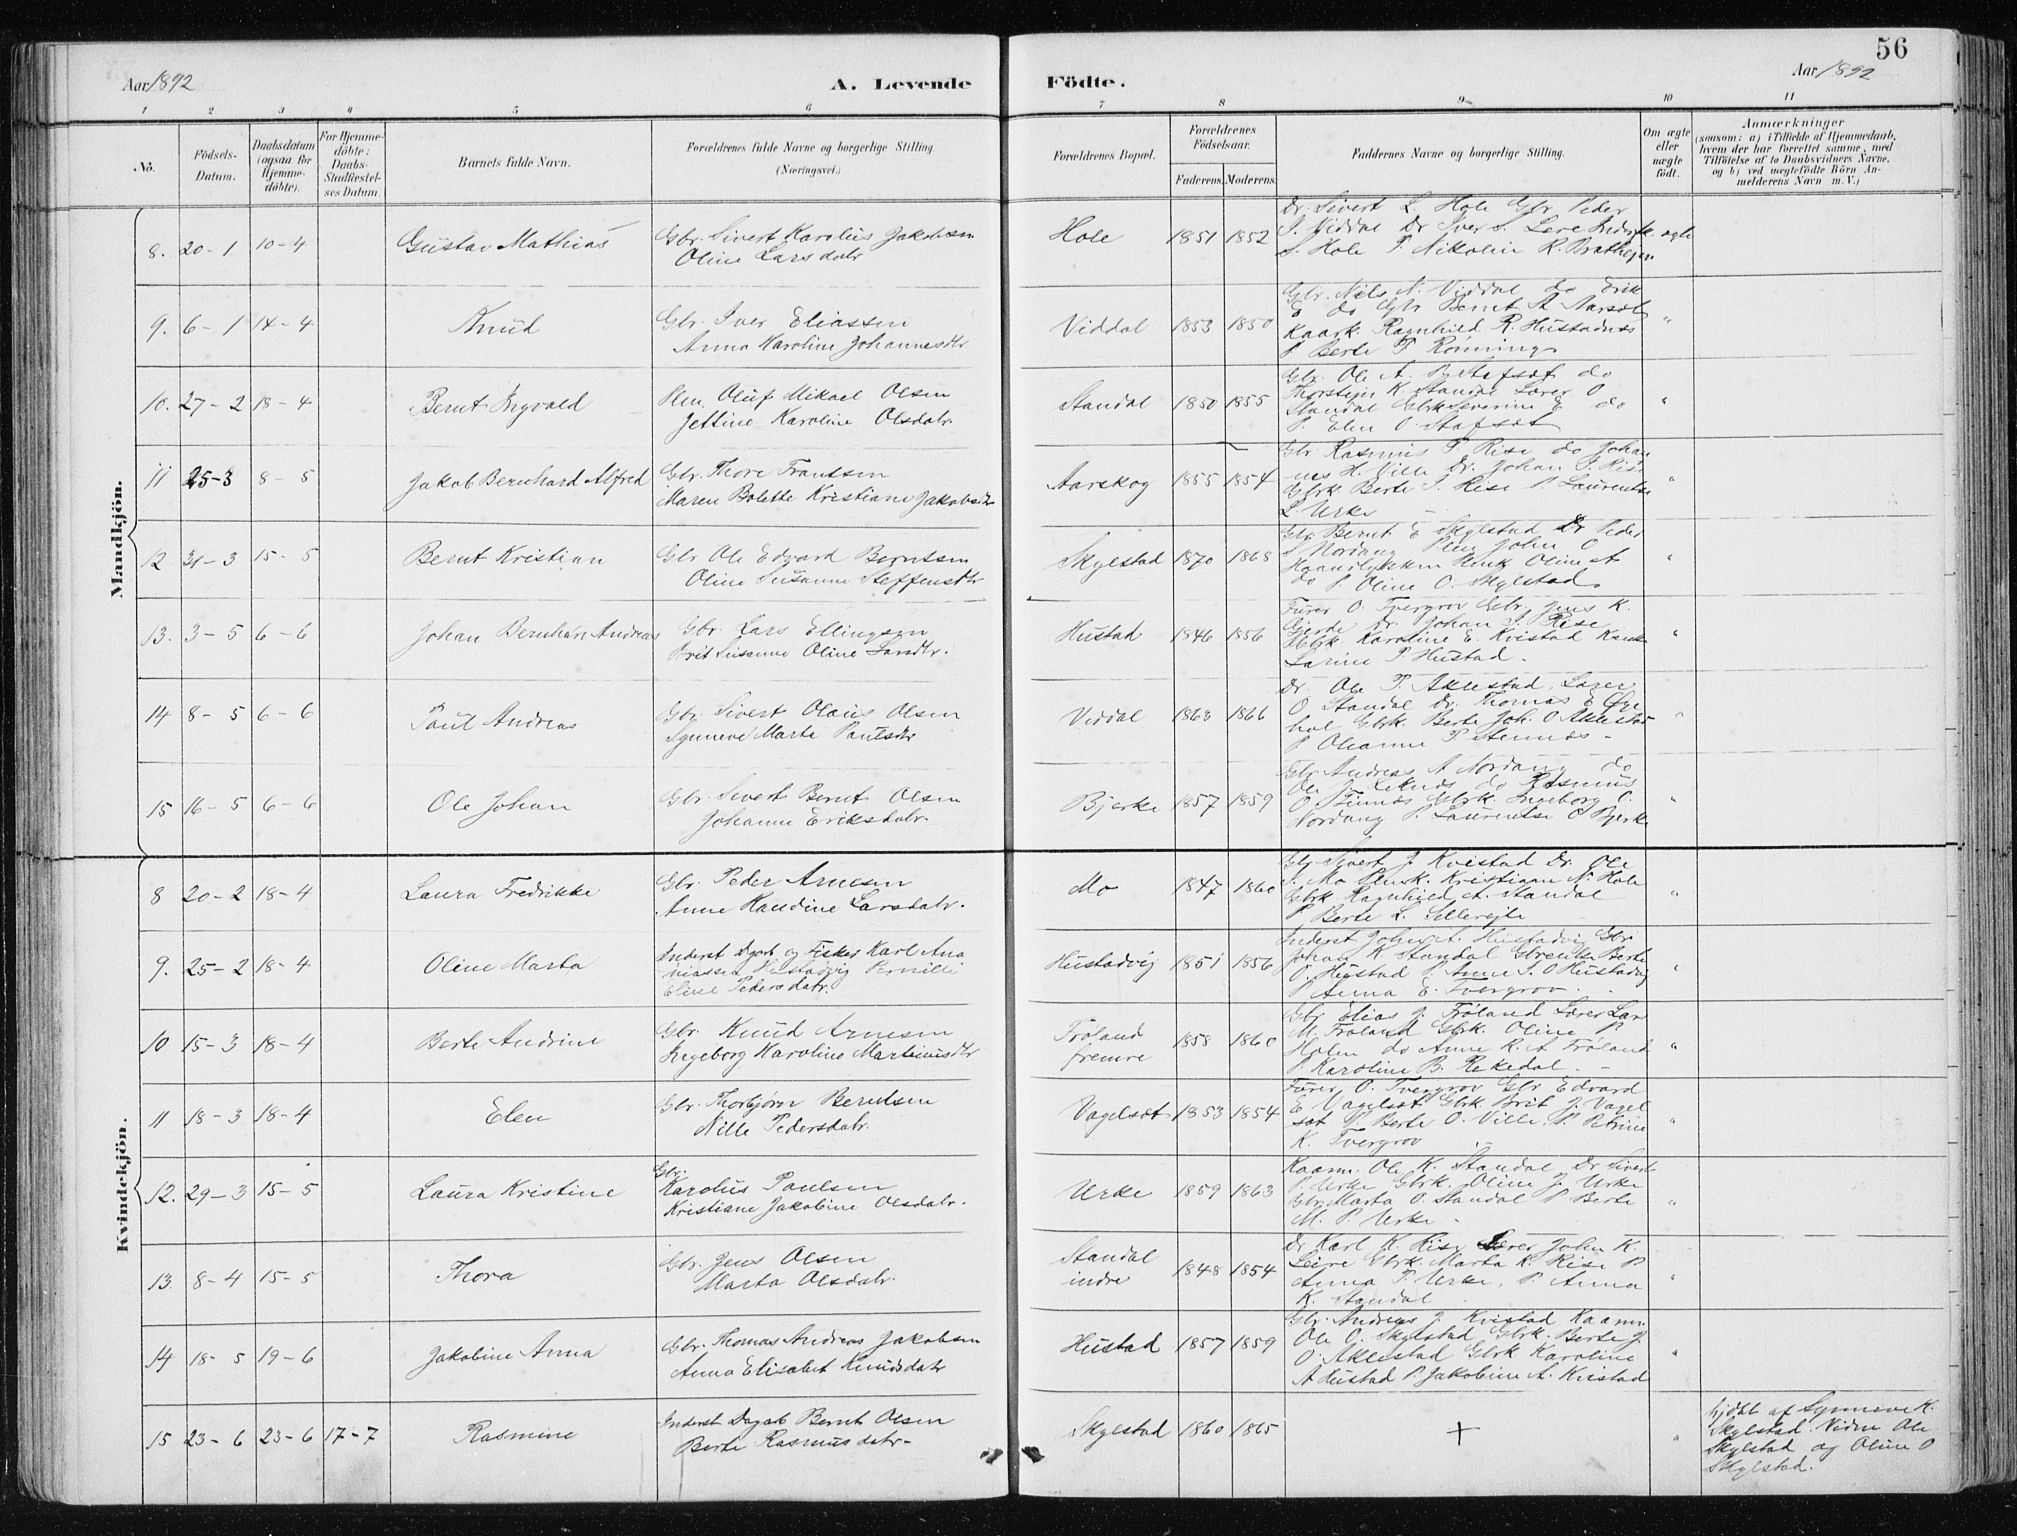 56
Aar 1892
A. Levende
Födte.
Aar 1892
1 2 3 4 5 6 7 8 9 10 11
No.
Födsels-
Datum.
Daabsdatum
(ogsaa for
Hjemme-
döbte).
For Hjemme-
döbte:
Daabs-
Stadfæstel-
ses Datum.
Barnets fulde Navn.
Forældrenes fulde Navne og borgerlige Stilling.
(Næringsvei.)
Forældrenes Bopæl.
Forældrenes
Födselsaar.
Faderens. Moderens.
Faddernes Navne og borgerlige Stilling.
Om ægte
eller
uægte
födt.
Anmærkninger
(saasom: a) i Tilfælde af Hjemmedaab,
hvem der har forrettet samme, med
Tilföielse af to Daabsvidners Navne,
og b) ved uægtefödte Börn An-
melderens Navn m.V.)
Mandkjön.
8. 20-1 10-4 Gustav Mathias
Gbr. Sivert Karolius Jakobsen
Oline Larsdatr
Hole 1851 1852
Dr. Sivert L. Hole Gbr. Peder
S. Viddal Dr Iver S. Lere
S. Hole P. Nikolin R.
ægte
9. 6-1 14-4 Knud
Gbr. Iver Eliassen
Anna Karoline Johannesdtr
Viddal 1853 1850
Gbr. Nils N. Viddal do Erik
E do Gbr Bernt A Aarset
Kaark. Ragnhild R. Hustadnes
P Berte P Rönning
"
10. 27-2 18-4 Bernt Ingvald
Oluf Mikael Olsen
Jettine Karoline Olsdatr.
Standal 1850 1855
Gbr. Ole A. Stafset do
Thorstein K. Standal Lærer O
Standal Gbrk Severine E do
P. Elen O Stafset
"
11 25-3 8-5 Jakob Bernhard Alfred
Gbr. Thore Frantsen
Maren Bolette Kristiane Jakobsdtr
Aarskog 1855 1854
Gbr Rasmus P Rise do Johan
nes H. Ville Dr. Johan P. Rise
Gbrk. Berte J. Rise P Laurentse
L. Urke
"
12 31-3 15-5 Bernt Kristian
Gbr Ole Edvard Berntsen
Oline Susanne Steffensdtr
Skylstad 1870 1868
Gbr Bernt E Skylstad Dr Peder
S Nordang John O
Oline A
do P. Oline O. Skylstad
"
13. 3-5 6-6 Johan Bernhard Andreas
Gbr. Lars Ellingsen
Brit Susanne Oline Larsdtr.
Hustad 1846 1856
Furer O. Tvergrov Gbr. Jens K.
Gjerde Dr. Johan S. Rise
Gbrk Karoline E. Kvistad
Larine P. Hustad.
"
14 8-5 6-6 Paul Andreas
Gbr. Sivert Olaus Olsen
Synneve Marte Paulsdtr
Viddal 1863 1866
Dr. Ole P. Aklestad, Lærer
O Standal Dr. Thomas E Øye
hol Gbrk. Berte Joh. O Aklestad
P Oleanne P Stennes
"
15 16-5 6-6 Ole Johan
Gbr. Sivert Bernt Olsen
Johanne Eriksdatr.
Bjerke 1857 1859
Gbr Andreas A Nordang do
Ole J. Leknes do Rasmus
O. Finnes Gbrk. Ingeborg O.
Nordang P. Laurentse O Bjerke
"
Kvindekjön.
8 20-2 18-4 Laura Fredrikke
Gbr. Peder Arnesen
Anne Handine Larsdatr.
Mo 1847 1860
Gbr Sivert J. Kvistad Dr. Ole
S. Mo Kristiane N. Hole
Gbrk Ragnhild A. Standal
P Berte L. Sellereite
"
9. 25-2 18-4 Oline Marta
Inderst Dgarb og Fisker Karl Ana
niassen Hustadvig Pernille
Eline Pedersdatr.
Hustadvig 1851 1856
Inderst John A. Hustadvig Gbr
Johan K Standal Berte
O. Hustad P. Anne S. O Hustadvig
P Anna E. Tvergrov.
"
10 15-3 18-4 Berte Andrine
Gbr. Knud Arnesen
Ingeborg Karoline Martinusdtr
Fröland
fremre 1858 1860
Gbr Elias J. Fröland Lærer Lars
M. Fröland Gbrk. Oline P.
Holen do Anne R. A Fröland
P Karoline B. Rekedal.
"
11 18-3 18-4 Elen
Gbr. Thorbjörn Berntsen
Nille Pedersdatr.
Vagelset 1853 1854
Furer O. Tvergrov Gbr Edvard
E Vagelset Gbrk. Brit J. Vagel
set P. Berte O. Ville, P. Petrine
K. Tvergrov
"
12. 29-3 15-5 Laura Kristine
Gbr.
Karolus Paulsen
Kristiane Jakobine Olsdatr.
Urke 1859 1863
Kaarm. Ole K. Standal, Dr Sivert
P. Urke Gbrk. Oline J. Urke
Gbr. Marta O. Standal P Berte
M. P. Urke
"
13. 8-4 15-5 Thora
Gbr. Jens Olsen
Marta Olsdatr.
Standal
indre 1848 1854
Dr Karl K. Rise Lærer John K.
Leire Gbrk. Marta K. Rise P
Anna P. Urke, P. Anna
K. Standal
"
14 18-5 19-6 Jakobine Anna
Gbr. Thomas Andreas Jakobsen
Anna Elisabet Knudsdatr
Hustad 1857 1859
Gbr. Andreas J. Kvistad Kaarm.
Ole O. Skylstad Gbrk. Berte J.
O. Aklestad Gbrk Karoline
A Hustad P. Jakobine A. Kvistad
"
15 23-6 23-6 17-7 Rasmine
Inderst Dagarb Bernt Olsen
Berte Rasmusdatr.
Skylstad 1860 1865
+
"
hjdbt af Synneve K.
Skylstad. Vidne Ole
Skylstad og Oline O
Skylstad.